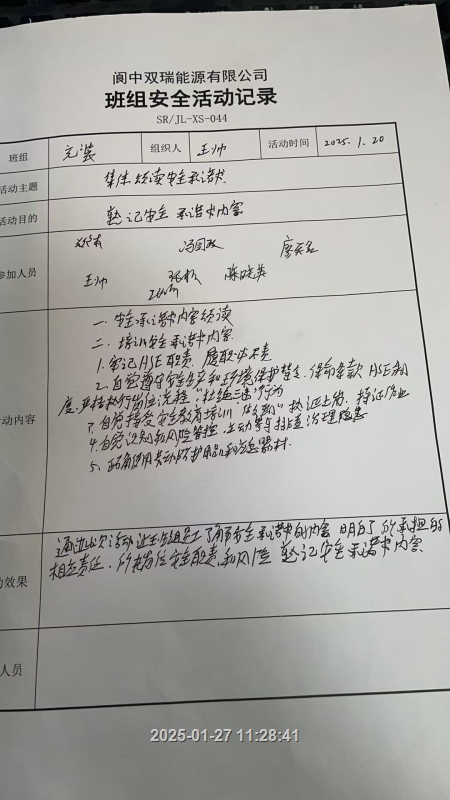 阆中双瑞能源有限公司
班组安全活动记录
SR/JL-XS-044
班组 充装 组织人 王帅 活动时间 2025.1.20
活动主题 集体领读安全承诺书
活动目的 熟记安全承诺书内容
参加人员
王帅 陈晓英
动内容
一.安全承诺书内容领读
二.培训安全承诺书内容
1.牢记HSE职责,履职尽责
2.自觉遵守安全生产和环境保护禁令、保命条款、HSE制
度.严格执行岗位流程"杜绝三违"行为
3.自觉接受安全教育培训 执证上岗、持证作业
4.自觉识别和风险管控,主动参与排查治理隐患
5.正确使用劳动防护用品和应急器材.
动效果
通过此次活动让班组员工了解安全承诺书的内容 明白了所承担的
相应责任.所在岗位安全职责和风险 熟记安全承诺书内容
人员
2025-01-27 11:28:41